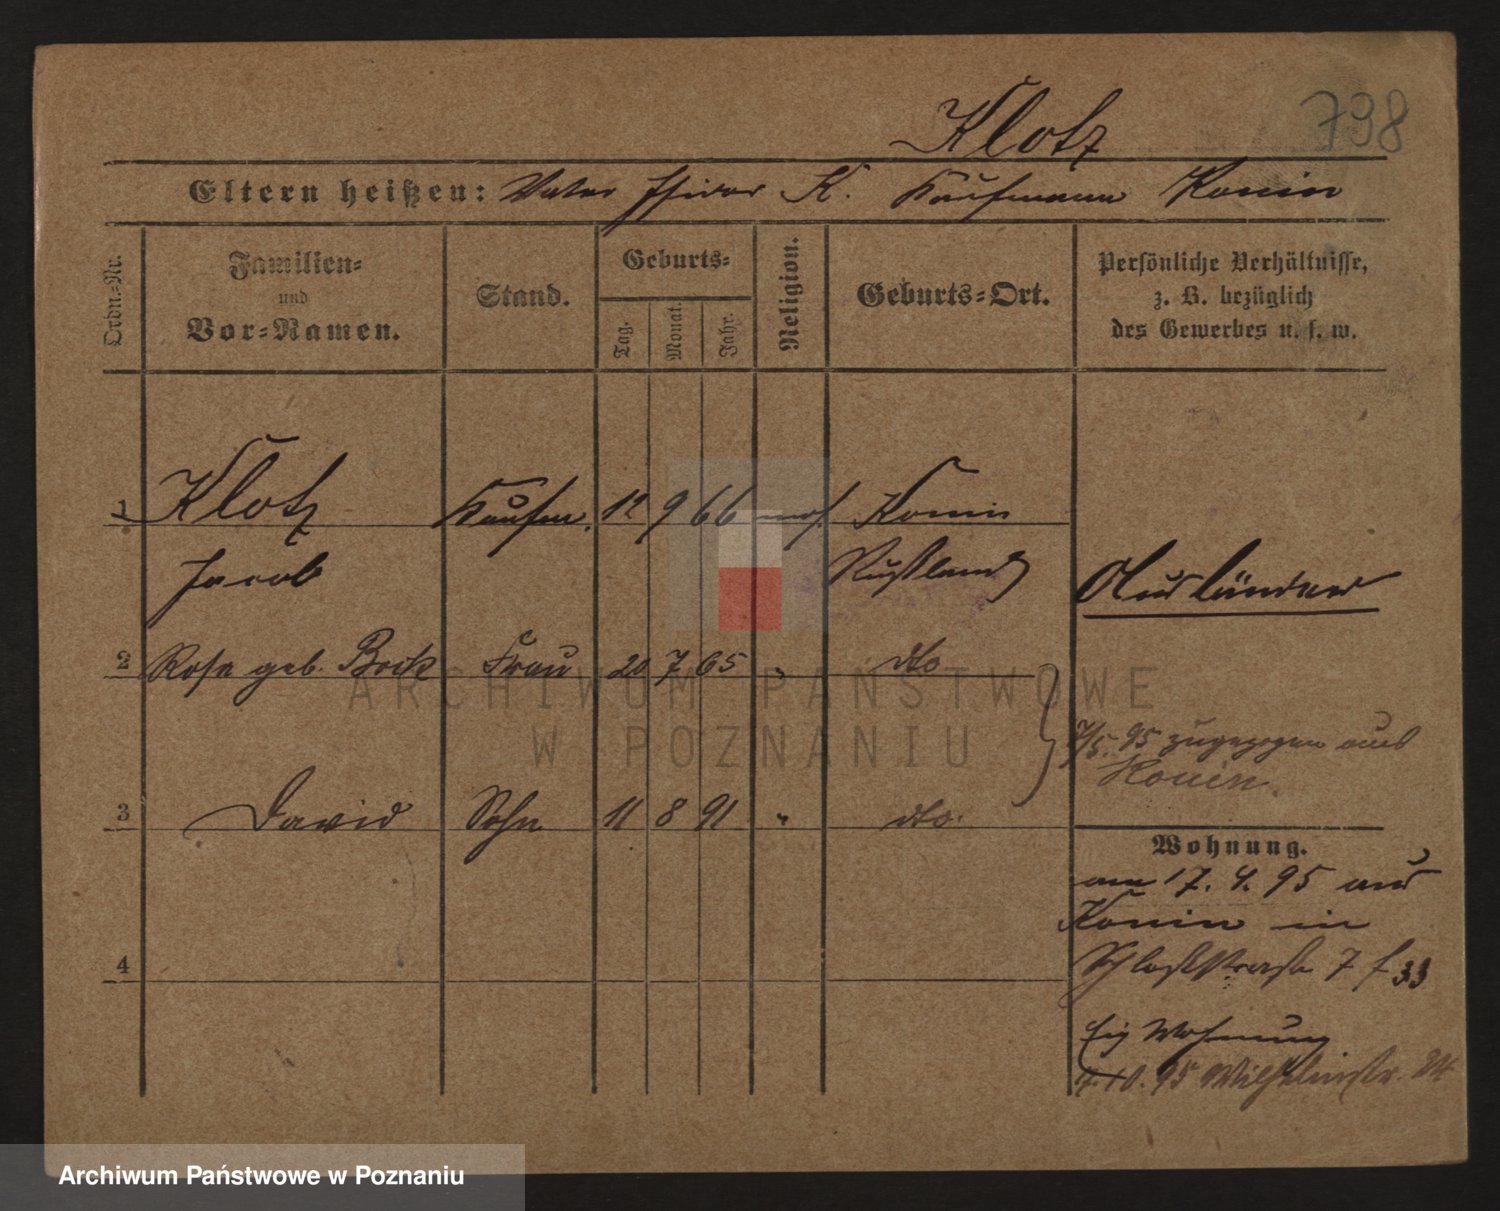 Klotz 798
Eltern heißen: Vater Isidor K. Kaufmann Konin
Ordn.-Nr.
Familien-
und
Vor-Namen.
Stand.
Geburts-
Tag.
Monat.
Jahr.
Religion.
Geburts-Ort.
Persönliche Verhältnisse,
z. B. bezüglich
des Gewerbes u. s. w.
1 Klotz Kaufm. 12 9 66 mos. Konin
Jacob Rußland
Ausländer
2 Rosa geb. Bock Frau 20 7 65 " dto
ARCHIWUM PAŃSTWOWE
W POZNANIU
7/5. 95 zugezogen aus
Konin.
3 David Sohn 11 8 91 " dto.
Wohnung.
am 17. 4. 95 aus
Konin in
Schloßstraße 7
4
Eig Wohnung
4.10. 95 Wilhelmstr.
Archiwum Państwowe w Poznaniu